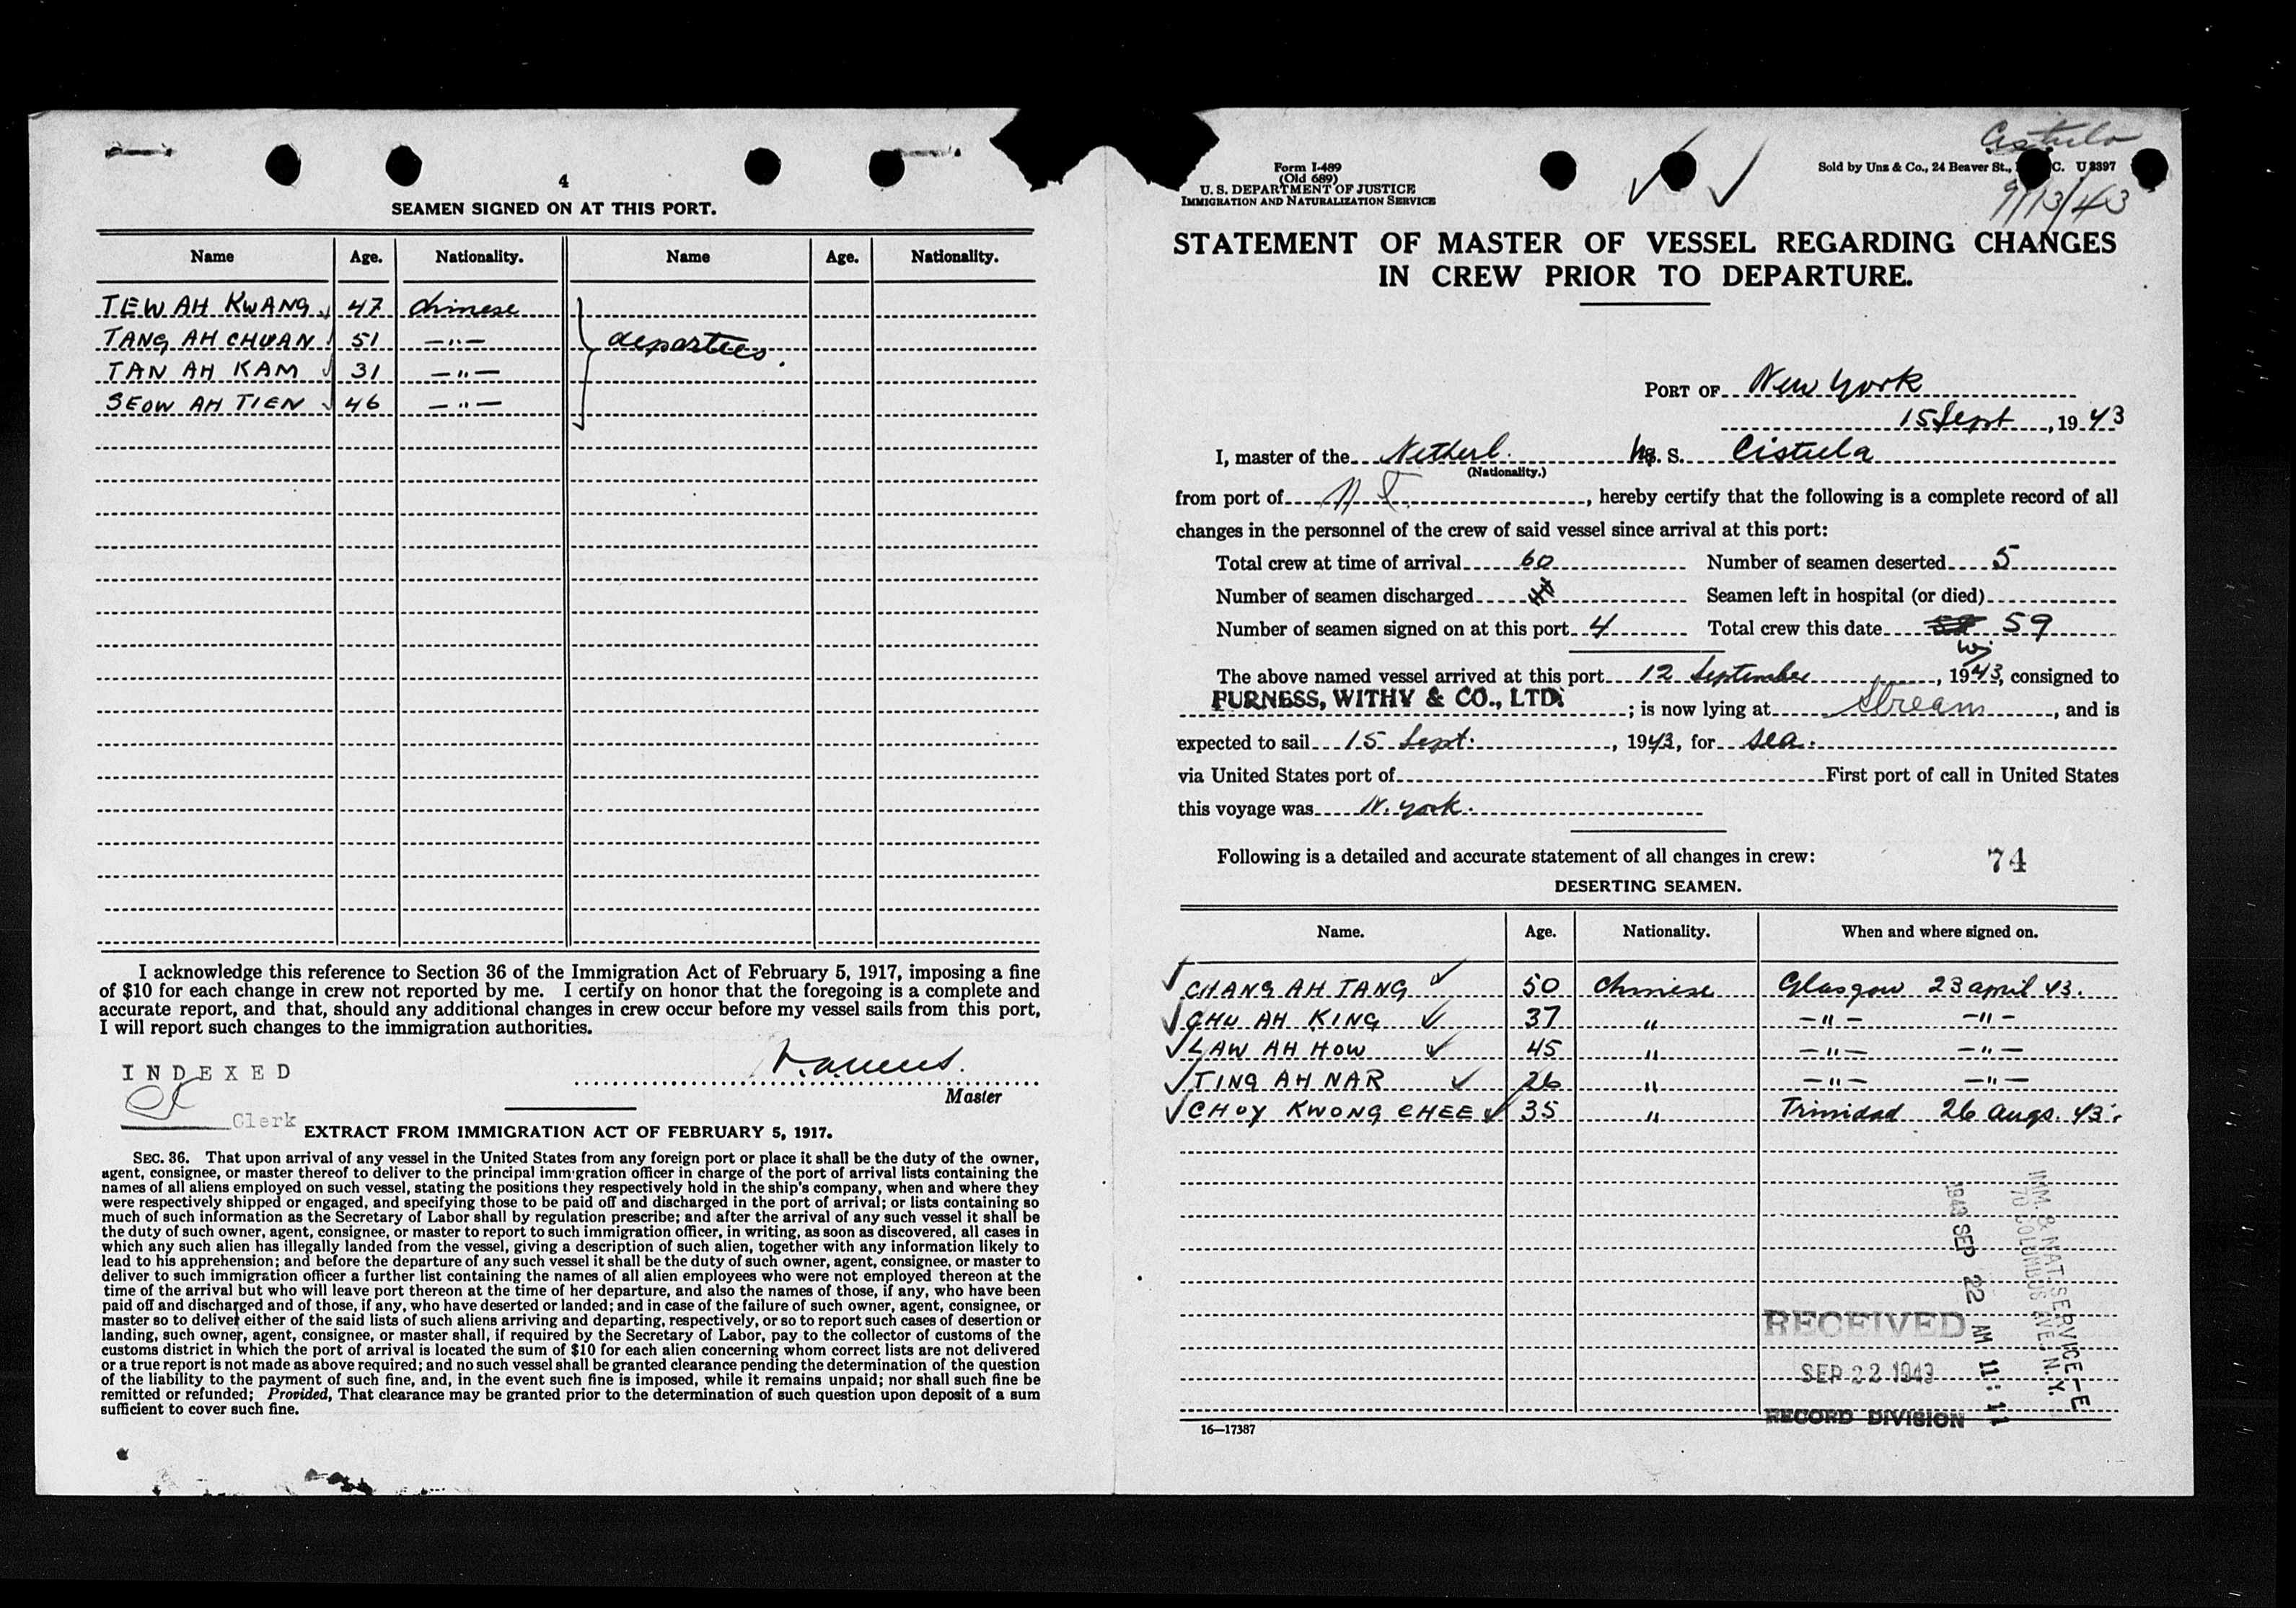 4
SEAMEN SIGNED ON AT THIS PORT.
Name Age. Nationality. Name Age. Nationality.
TEW AH KWANG 47 Chinese
TANG AH CHUAN 51 —"—
TAN AH KAM 31 —"—
SEOW AH TIEN 46 —"—
I acknowledge this reference to Section 36 of the Immigration Act of February 5, 1917, imposing a fine
of $10 for each change in crew not reported by me. I certify on honor that the foregoing is a complete and
accurate report, and that, should any additional changes in crew occur before my vessel sails from this port,
I will report such changes to the immigration authorities.
INDEXED
Master
Clerk
EXTRACT FROM IMMIGRATION ACT OF FEBRUARY 5, 1917.
SEC. 36. That upon arrival of any vessel in the United States from any foreign port or place it shall be the duty of the owner,
agent, consignee, or master thereof to deliver to the principal immigration officer in charge of the port of arrival lists containing the
names of all aliens employed on such vessel, stating the positions they respectively hold in the ship's company, when and where they
were respectively shipped or engaged, and specifying those to be paid off and discharged in the port of arrival; or lists containing so
much of such information as the Secretary of Labor shall by regulation prescribe; and after the arrival of any such vessel it shall be
the duty of such owner, agent, consignee, or master to report to such immigration officer, in writing, as soon as discovered, all cases in
which any such alien has illegally landed from the vessel, giving a description of such alien, together with any information likely to
lead to his apprehension; and before the departure of any such vessel it shall be the duty of such owner, agent, consignee, or master to
deliver to such immigration officer a further list containing the names of all alien employees who were not employed thereon at the
time of the arrival but who will leave port thereon at the time of her departure, and also the names of those, if any, who have been
paid off and discharged and of those, if any, who have deserted or landed; and in case of the failure of such owner, agent, consignee, or
master so to deliver either of the said lists of such aliens arriving and departing, respectively, or so to report such cases of desertion or
landing, such owner, agent, consignee, or master shall, if required by the Secretary of Labor, pay to the collector of customs of the
customs district in which the port of arrival is located the sum of $10 for each alien concerning whom correct lists are not delivered
or a true report is not made as above required; and no such vessel shall be granted clearance pending the determination of the question
of the liability to the payment of such fine, and, in the event such fine is imposed, while it remains unpaid; nor shall such fine be
remitted or refunded; Provided, That clearance may be granted prior to the determination of such question upon deposit of a sum
sufficient to cover such fine.
Cistula
9/13/43
Form I-489
(Old 689)
U. S. DEPARTMENT OF JUSTICE
IMMIGRATION AND NATURALIZATION SERVICE
Sold by Unz & Co., 24 Beaver St., C. U 2397
STATEMENT OF MASTER OF VESSEL REGARDING CHANGES
IN CREW PRIOR TO DEPARTURE.
PORT OF New York
15 Sept, 1943
I, master of the Netherl. M. S. Cistula
(Nationality.)
from port of , hereby certify that the following is a complete record of all
changes in the personnel of the crew of said vessel since arrival at this port:
Total crew at time of arrival 60 Number of seamen deserted 5
Number of seamen discharged Seamen left in hospital (or died)
Number of seamen signed on at this port 4 Total crew this date 59
The above named vessel arrived at this port 12 September, 1943, consigned to
FURNESS, WITHY & CO., LTD. ; is now lying at Stream, and is
expected to sail 15 Sept., 1943, for sea.
via United States port of First port of call in United States
this voyage was N. York.
Following is a detailed and accurate statement of all changes in crew: 74
DESERTING SEAMEN.
Name. Age. Nationality. When and where signed on.
CHANG AH TANG 50 Chinese Glasgow 23 april 43.
CHU AH KING 37 " —"— —"—
LAW AH HOW 45 " —"— —"—
TING AH NAR 26 " —"— —"—
CHOY KWONG CHEE 35 " Trinidad 26 Augs. 43.
IMM. & NAT. SERVICE—E
70 COLUMBUS AVE., N.Y.
1943 SEP 22 AM 11:11
RECEIVED
SEP 22 1943
RECORD DIVISION
16—17387